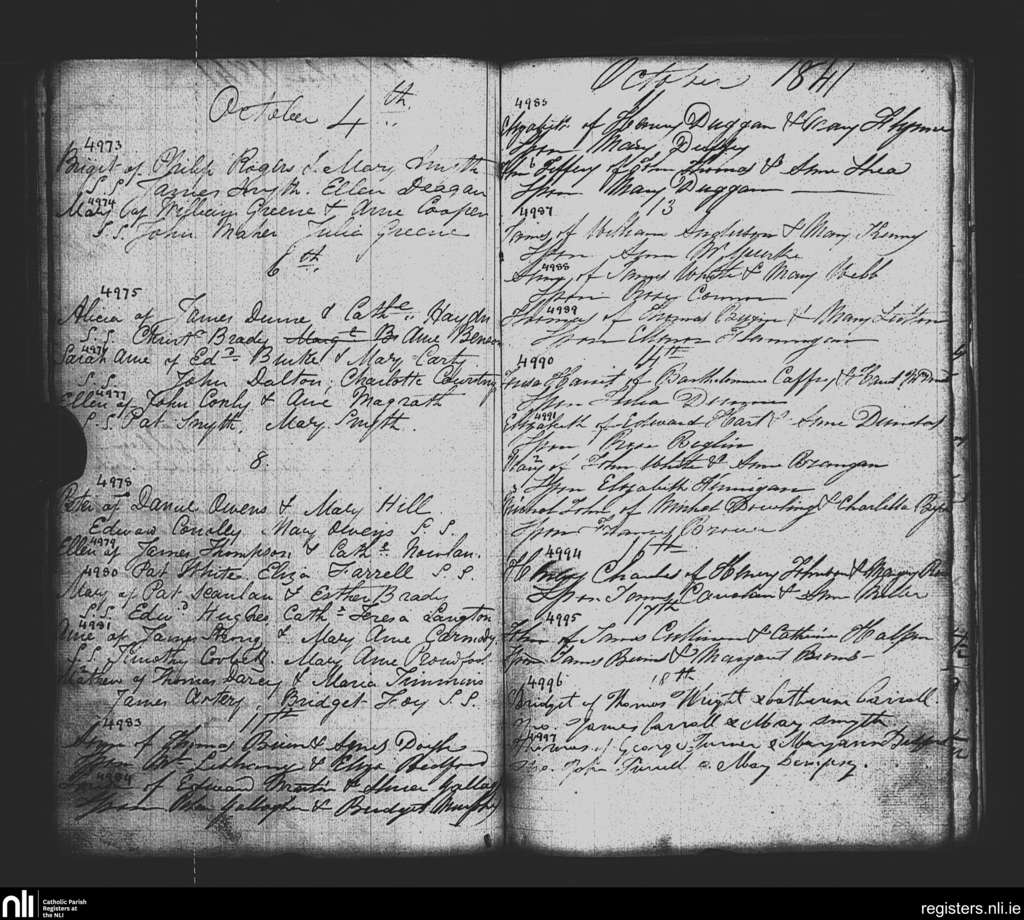 October 4th
4973
Brigit of Philip Rogers & Mary Smyth
S.S. James Smyth. Ellen Deagan
4974
Mary of William Greene & Anne Cooper
S.S. John Maher Julia Greene
6th
4975
Alicia of James Dunne & Cathe Haydn
S.S. Christr Brady Margt B Anne Benson
4976
Sarah Anne of Edd Burke & Mary Carty
S.S. John Dalton, Charlotte Courtny
4977
Ellen of John Conly & Anne Magrath
S.S. Pat Smyth, Mary Smyth.
8.
4978
Peter of Daniel Owens & Mary Hill.
Edward Conolly Mary Owens S.S.
4979
Ellen of James Thompson & Cathe Nowlan.
4980 Pat White, Eliza Farrell S.S.
Mary of Pat Scanlan & Esther Brady
S.S. Edwd Hughes Cathe Teresa Langton
4981
Anne of James Strong & Mary Anne Carmody
S.S. Timothy Corbett. Mary Anne
Mathew of Thomas Darcy & Maria Timmins
James Artery, Bridget Foy S.S.
4983
11th
of Thomas Brien & Agnes Doyle
Spon & Eliza Bedford
4984
of Edward &
Spon Gallagher & Bridget Murphy
October 1841
4985
Elizabeth of Henry Duggan & Mary
Spon Mary Duffy
6
Jeffery of John Thomas & Anne Shea
Spon Mary Duggan
13
4987
James of William Anderson & Mary Kenny
Spon Anne
4988
of James White & Mary Webb
Spon Rosy Connor
4989
Thomas of Thomas & Mary
Spon Ellenor Flannigan
4990
14th
Harriet of Bartholomew Caffry &
Spon Julia
4991
Elizabeth of Edward Hart & Anne Dundas
Spon Bryan Beglin
2
Mary of John White & Anne Brangan
3 Spon Elizabeth Hennigan
Michael John of Michael Dowling & Charlotte
Spon Brown
4994
16th
Charles of Henry Johnson & Mary
Spon & Ann Miller
17th
4995
John of James Cullinan & Catherine Halpin
Spon James Burns & Margaret Burns
4996
18th
Bridget of Thomas Wright & Catherine Carroll.
Spo. James Carroll & May Smyth
4997
Thomas of George Turner & Maryann
Spo. John Farrell & May Dempsy.
nli
Catholic Parish
Registers at
the NLI
registers.nli.ie